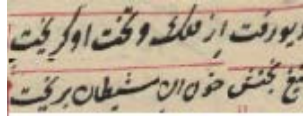 دیو رفت از ملک و تخت او گریخت
تیغ بختش خون آن شیطان بریخت